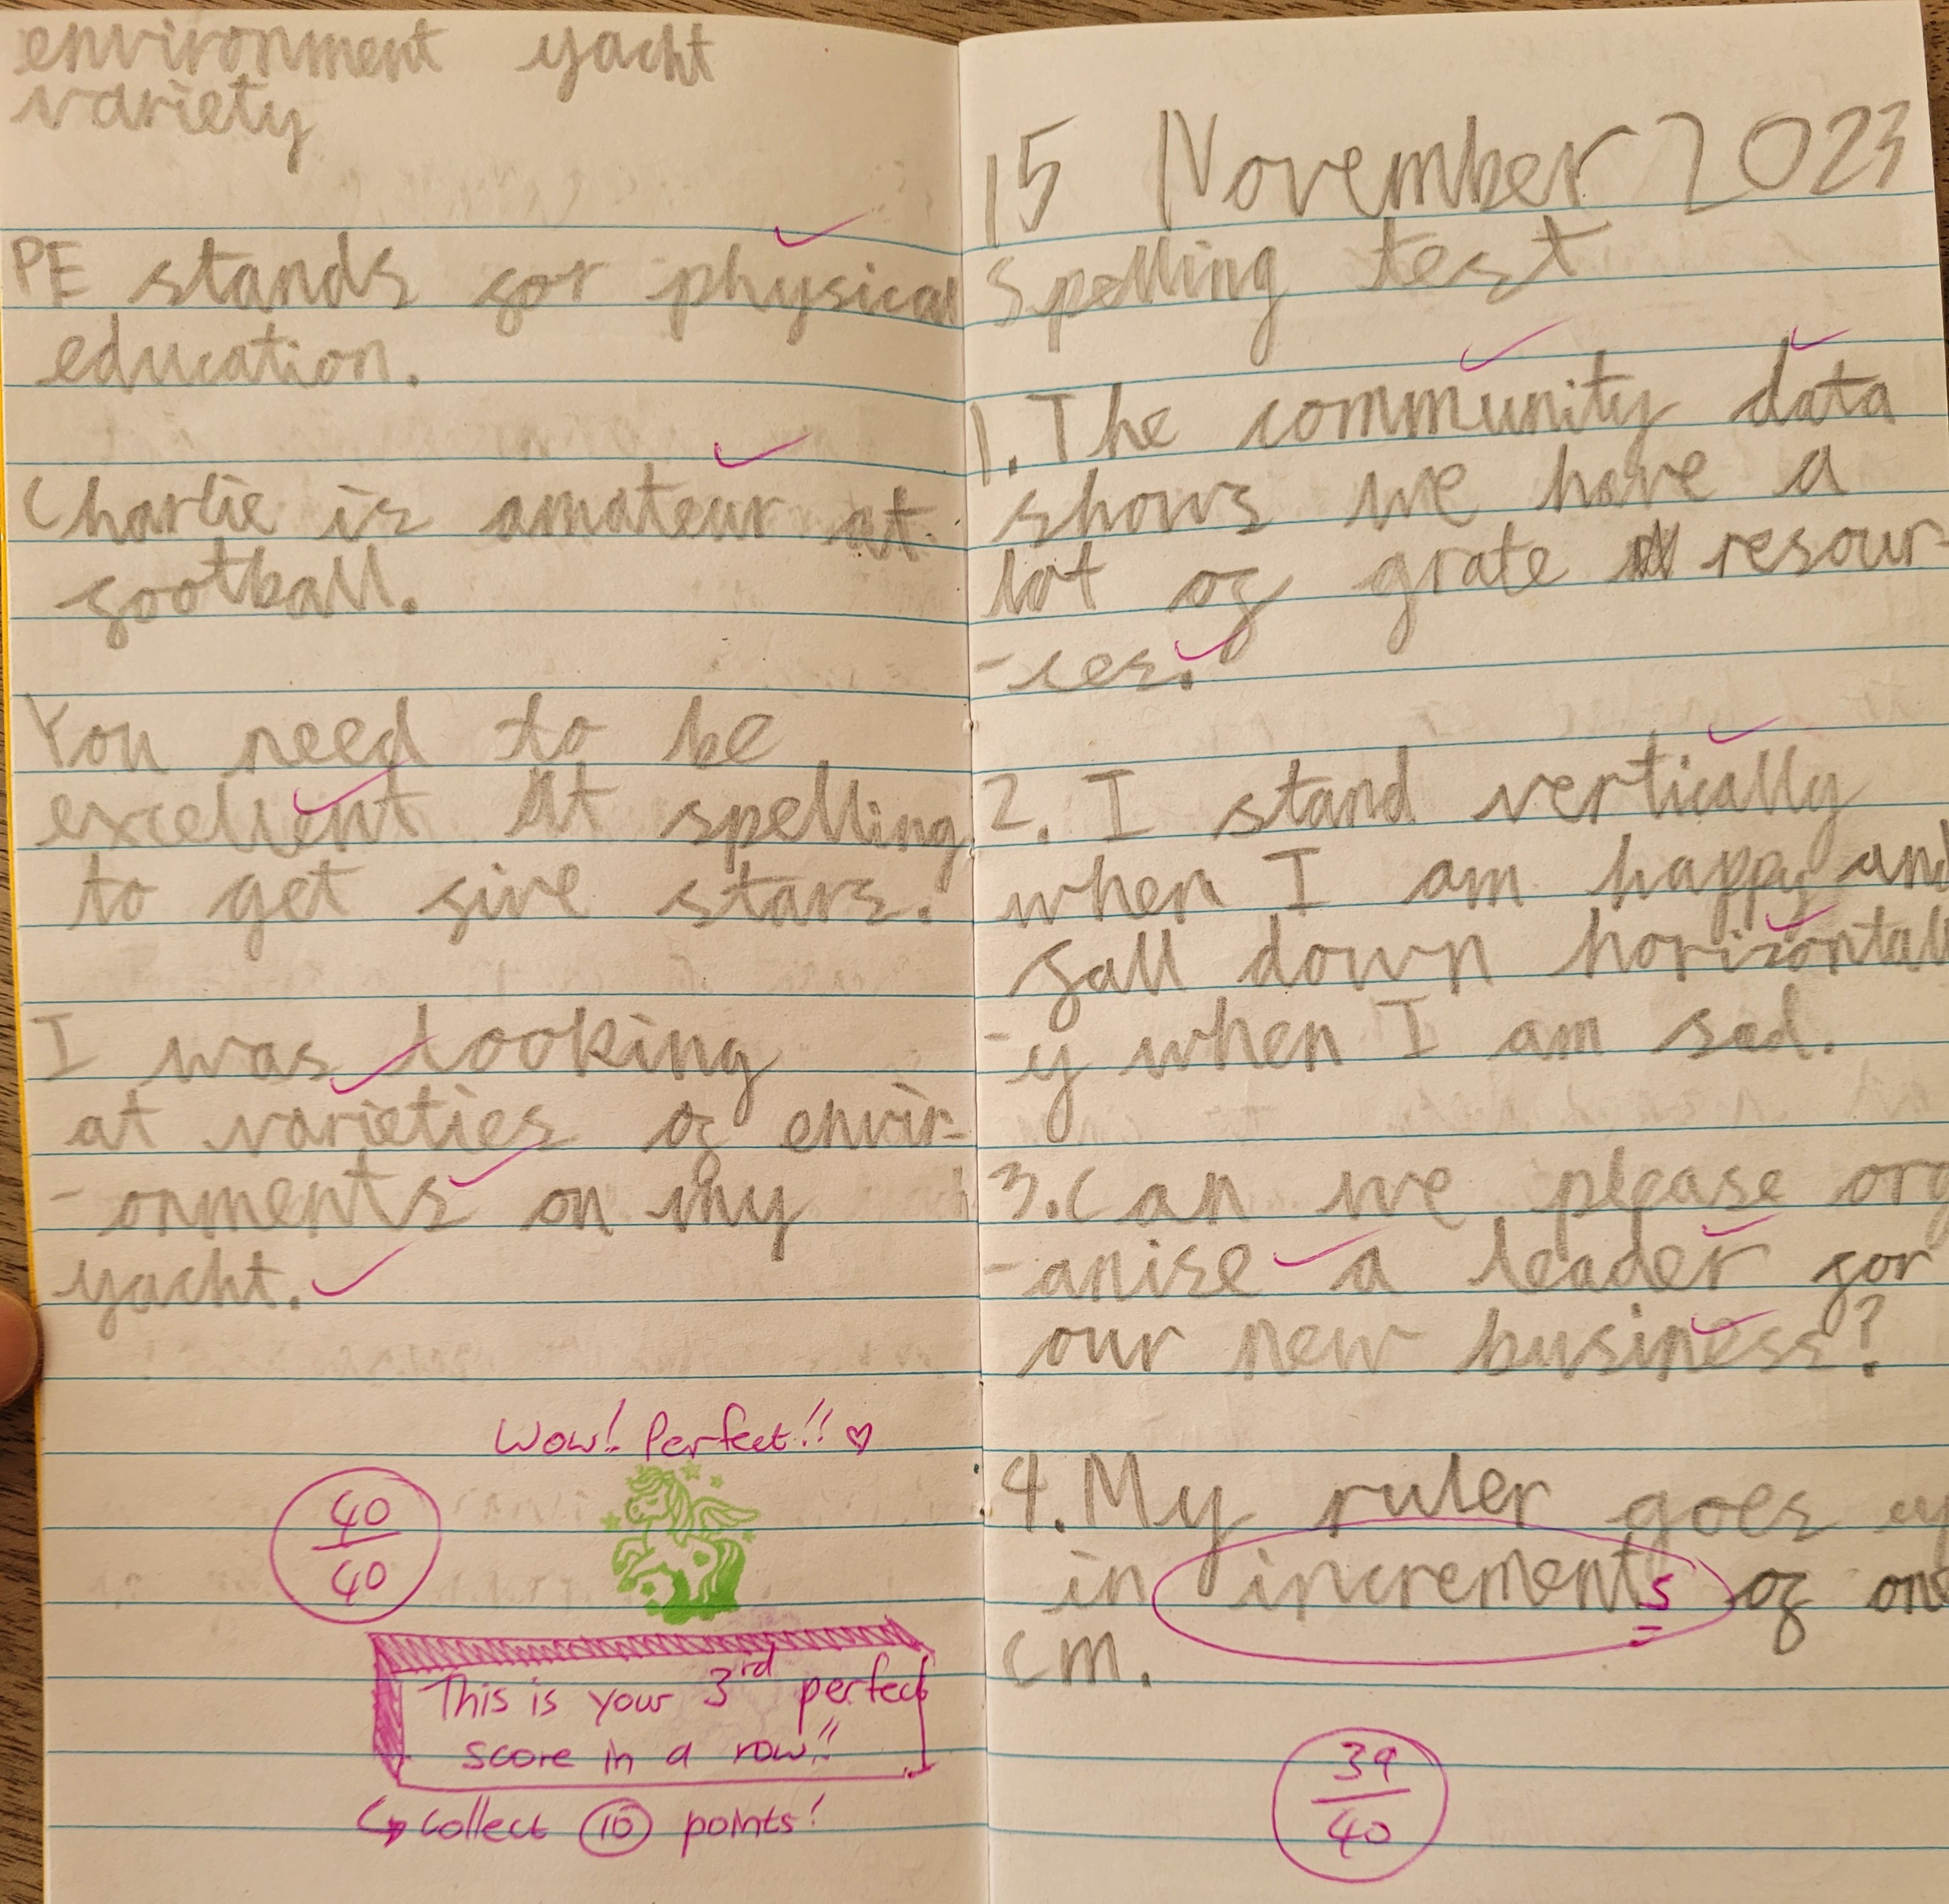 environment yacht
variety
PE stands for physical
education.
Charlie is amateur at
football.
You need to be
excellent at spelling
to get five stars.
I was looking
at varieties of envir-
-onments on my
yacht.
Wow! Perfect!! ♡
40
40
This is your 3rd perfect
score in a row!!
↳ Collect 10 points!
15 November 2023
Spelling test
1. The community data
shows we have a
lot of grate resour-
-ces.
2. I stand vertically
when I am happy and
fall down horizontall
-y when I am sad.
3. Can we please org
-anise a leader for
our new business?
4. My ruler goes up
in increments of one
cm.
39
40